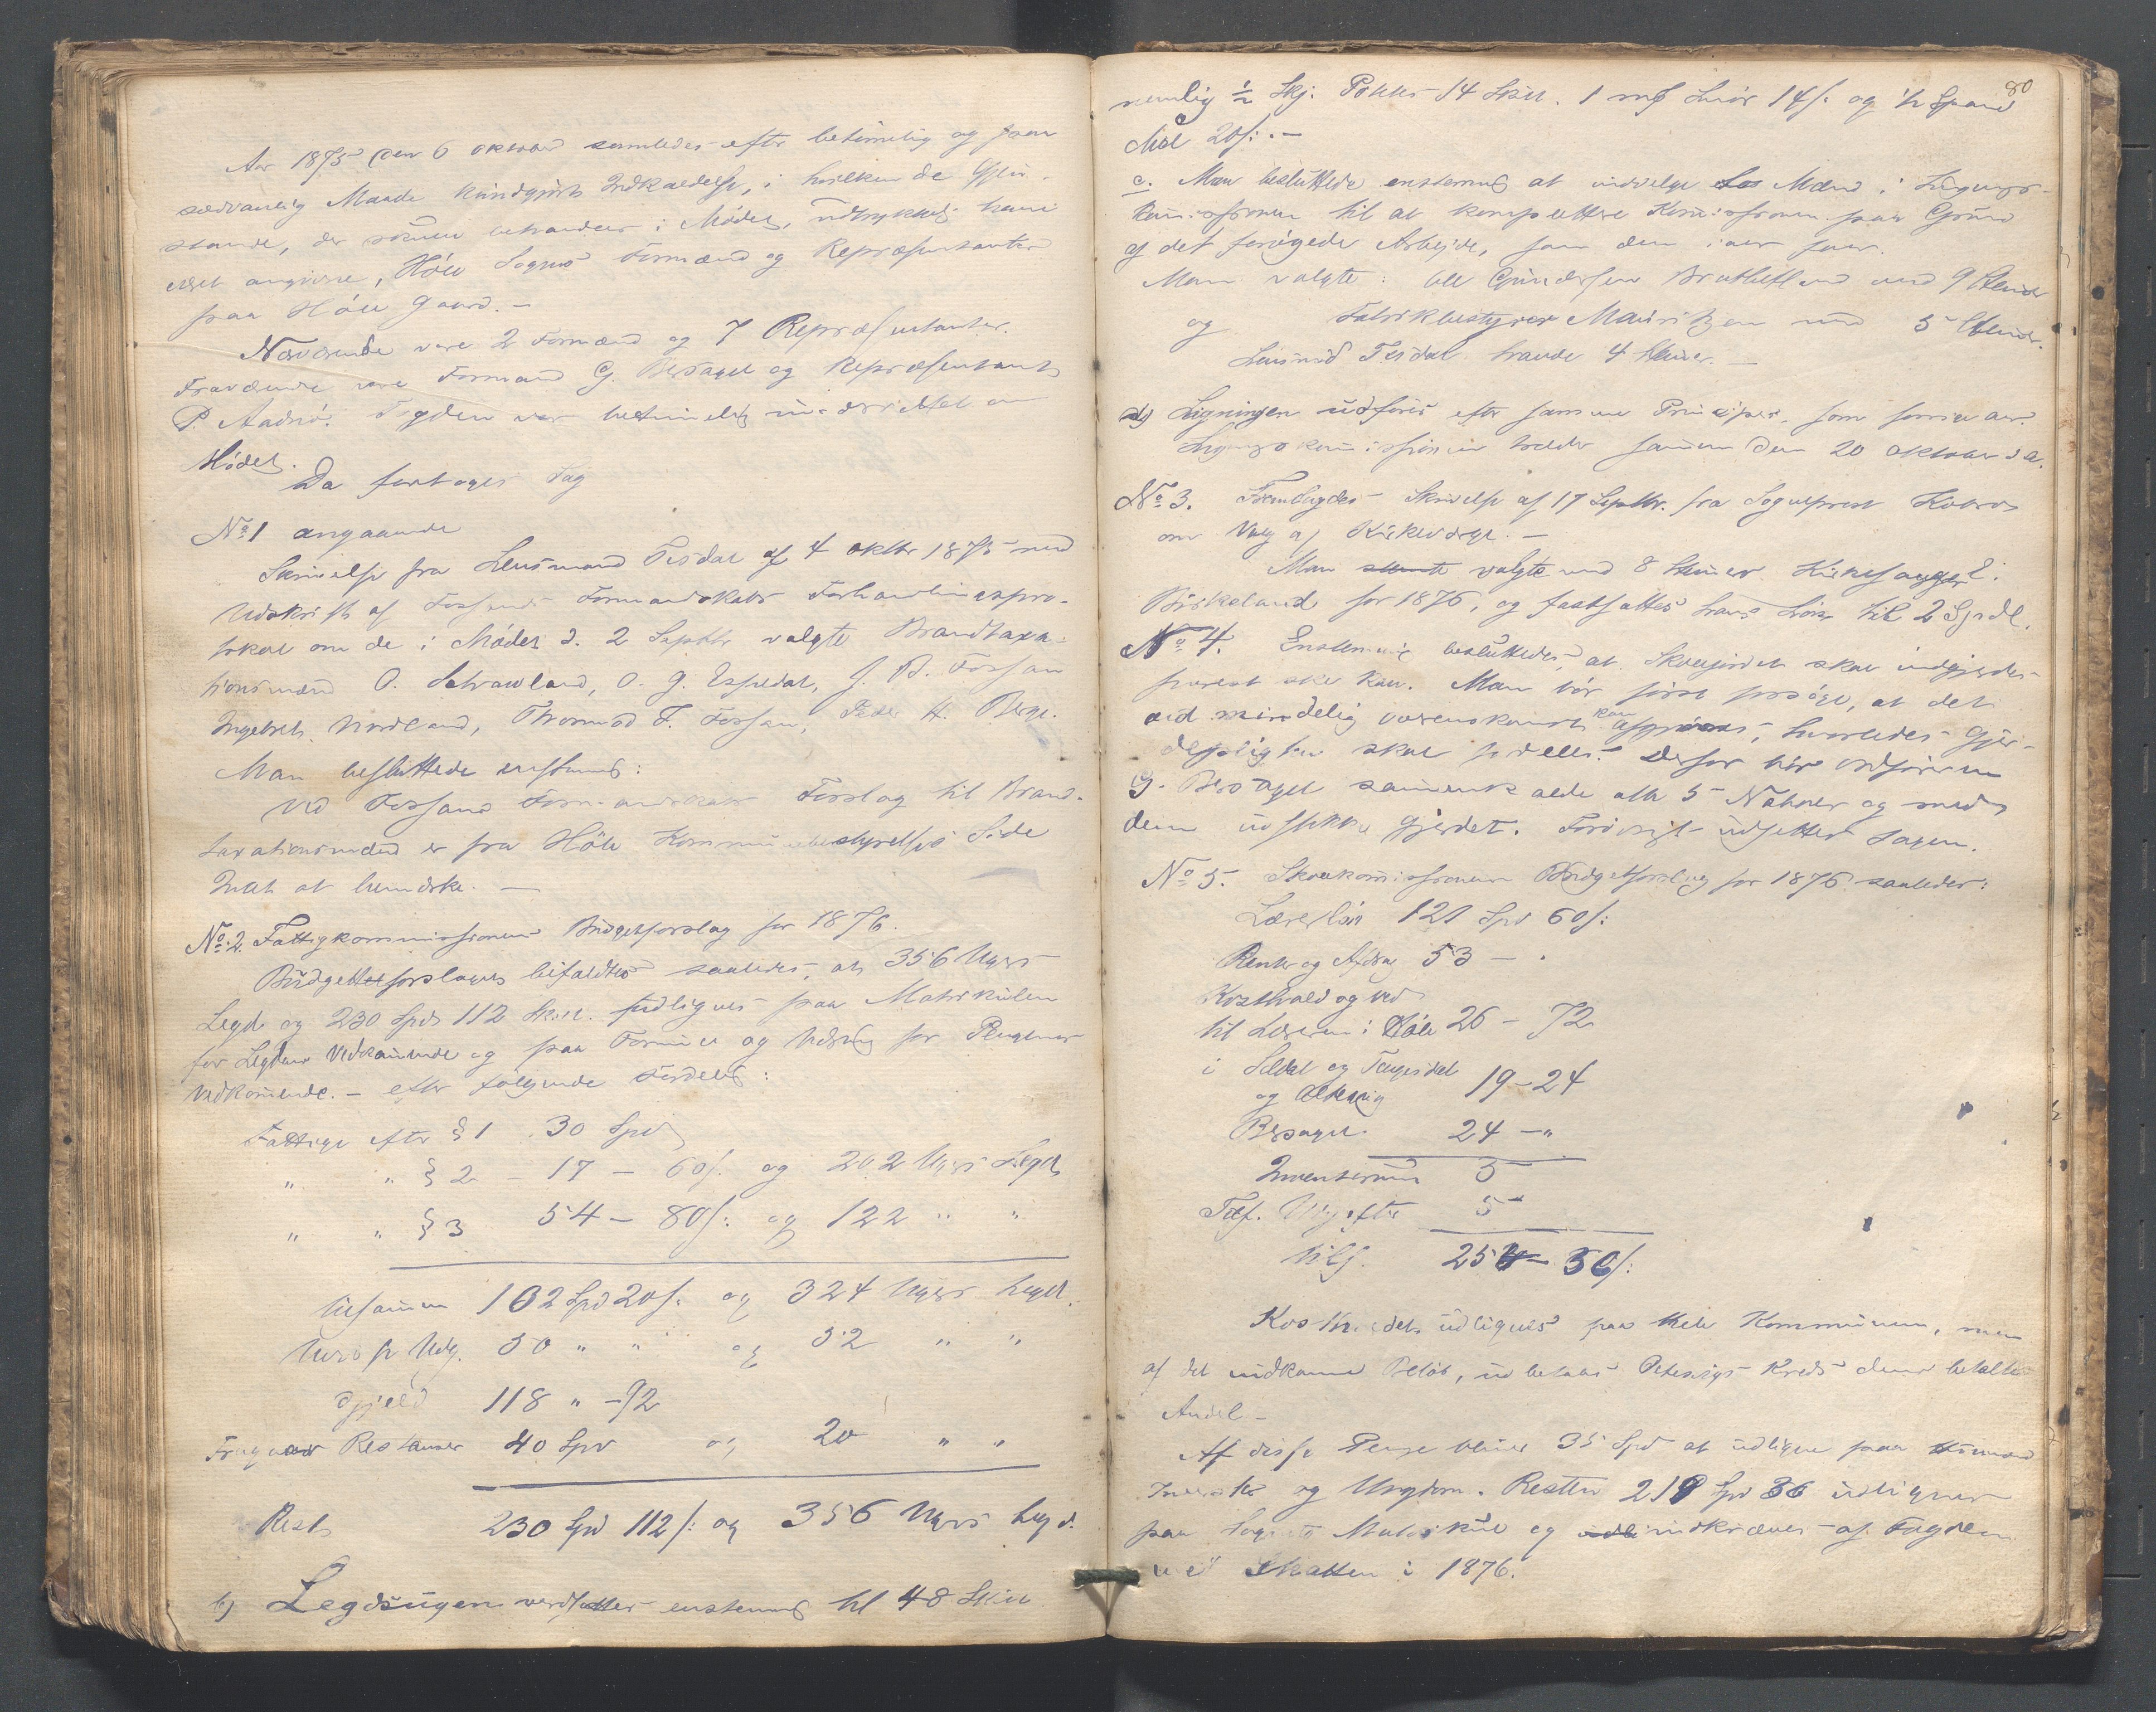 Aar 1875 den 6 oktober samledes efter betimelig og paa
sædvanlig Maade kundgjort Indkaldelse, i hvilken de Gjen-
stande, der skulle behandles i Mødet, udtrykkelig have
været angivne, Høle Sogns Formænd og Repræsentanter
paa Høle Gaard. –
Nærværende vare 2 Formænd og 7 Repræsentanter.
Fraværende vare Formand G. Bersagel og Repræsentant
P. Aadnø. Fogden var betimelig underrettet om
Mødet.
Da foretoges Sag
No 1 angaaende
Skrivelse fra Lensmand Tesdal af 4 oktbr 1875 med
Udskrift af Fossands Formandskabs Forhandlingspro-
tokol om de i Mødet d. 2 Septbr valgte Brandtaxa-
tionsmænd O. Schrawland, O. G. Espedal, J. B. Fossan
Ingebret Nordland, Thormod T. Fossan, Peder H. Berge.
Man besluttede enstemmig:
Ved Fossand Formandskabs Forslag til Brand-
taxationsmænd er fra Høle Kommunebestyrelses Side
Intet at bemærke. –
No. 2. Fattigkommissionens Budgetforslag for 1876.
Budgetforslaget bifaldtes saaledes, at 356 Ugers
Legd og 230 Spd 112 Skill. udlignes paa Matrikulen
for Legdens Vedkommende og paa Formue og Næring for Pengenes
Vedkommende. – efter følgende Fordeling:
Fattige efter § 1 30 Spd
" " § 2 – 17 – 60 s. og 202 Ugers Legd
" " § 3 54 – 80 s: og 122 " "
tilsammen 102 Spd 20 s: og 324 Ugers Legd.
Udg. 50 " " og 52 " "
Gjæld 118 " – 92
Restanser 40 Spd og 20 " "
Rest 230 Spd 112 s: og 356 Ugers Legd.
b) Legdsugen værdsættes enstemmig til 48 Skill
80
nemlig ½ Skj. Poteter 14 Skill. 1 Smør 14 s: og ½ Spand
Mel 20 s: . –
c. Man besluttede enstemmig at indvælge to Mænd i Lignings-
kommissionen til at komplettere Kommissionen paa Grund
af det forøgede Arbejde, som den iaar faar.
Man valgte: Ole Gundersen Bratteland med 9 Stemmer
og Fabrikbestyrer Mauritzen med 5 Stemmer.
Lensmand Tesdal havde 4 Stemmer. –
d) Ligningen udføres efter samme Principer, som forrige aar.
Ligningskommissionen træder sammen den 20 oktober d. a.
No 3. Fremlagdes Skrivelse af 17 Septbr. fra Sogneprest
om Valg af Kirkeværge. –
Man valgte med 8 Stemmer Kirkesanger E.
Birkeland for 1876, og fastsattes hans Løn til 2 Spdl.
No 4. Enstemmig besluttedes, at Skolejordet skal indgjerdes
snarest ske kan. Man bør først forsøge, at det
ved mindelig overenskomst kan afgjøres, hvorledes Gjer-
depligten skal fordeles. Derfor bør Ordføreren
G. Bersagel sammenkalde alle 5 Naboer og med
dem udstikke Gjerdet. Forøvrigt udsættes Sagen.
No 5. Skolekommissionens Budgetforslag for 1876 saaledes:
Lærerløn 121 Spd 60 s:
Renter og Afdrag 53 – .
Kosthold og Ved
til Læreren i Høle 26 – 72
i Seldal og
og 19 – 24
Bersagel. 24 – "
Inventarium 5
Tilf. Udgifter 5 "
tils. 254 – 36 s:
Kostholdet udlignes paa hele Kommunen, men
af det indkomne Beløb, udbetales Kreds dens betalte
Andel –
Af disse Penge bliver 35 Spd at udligne paa
og Ungdom. Resten 219 Spd 36 udlignes
paa Sognets Matrikul og indkræves af Fogden
ved Skatten i 1876.